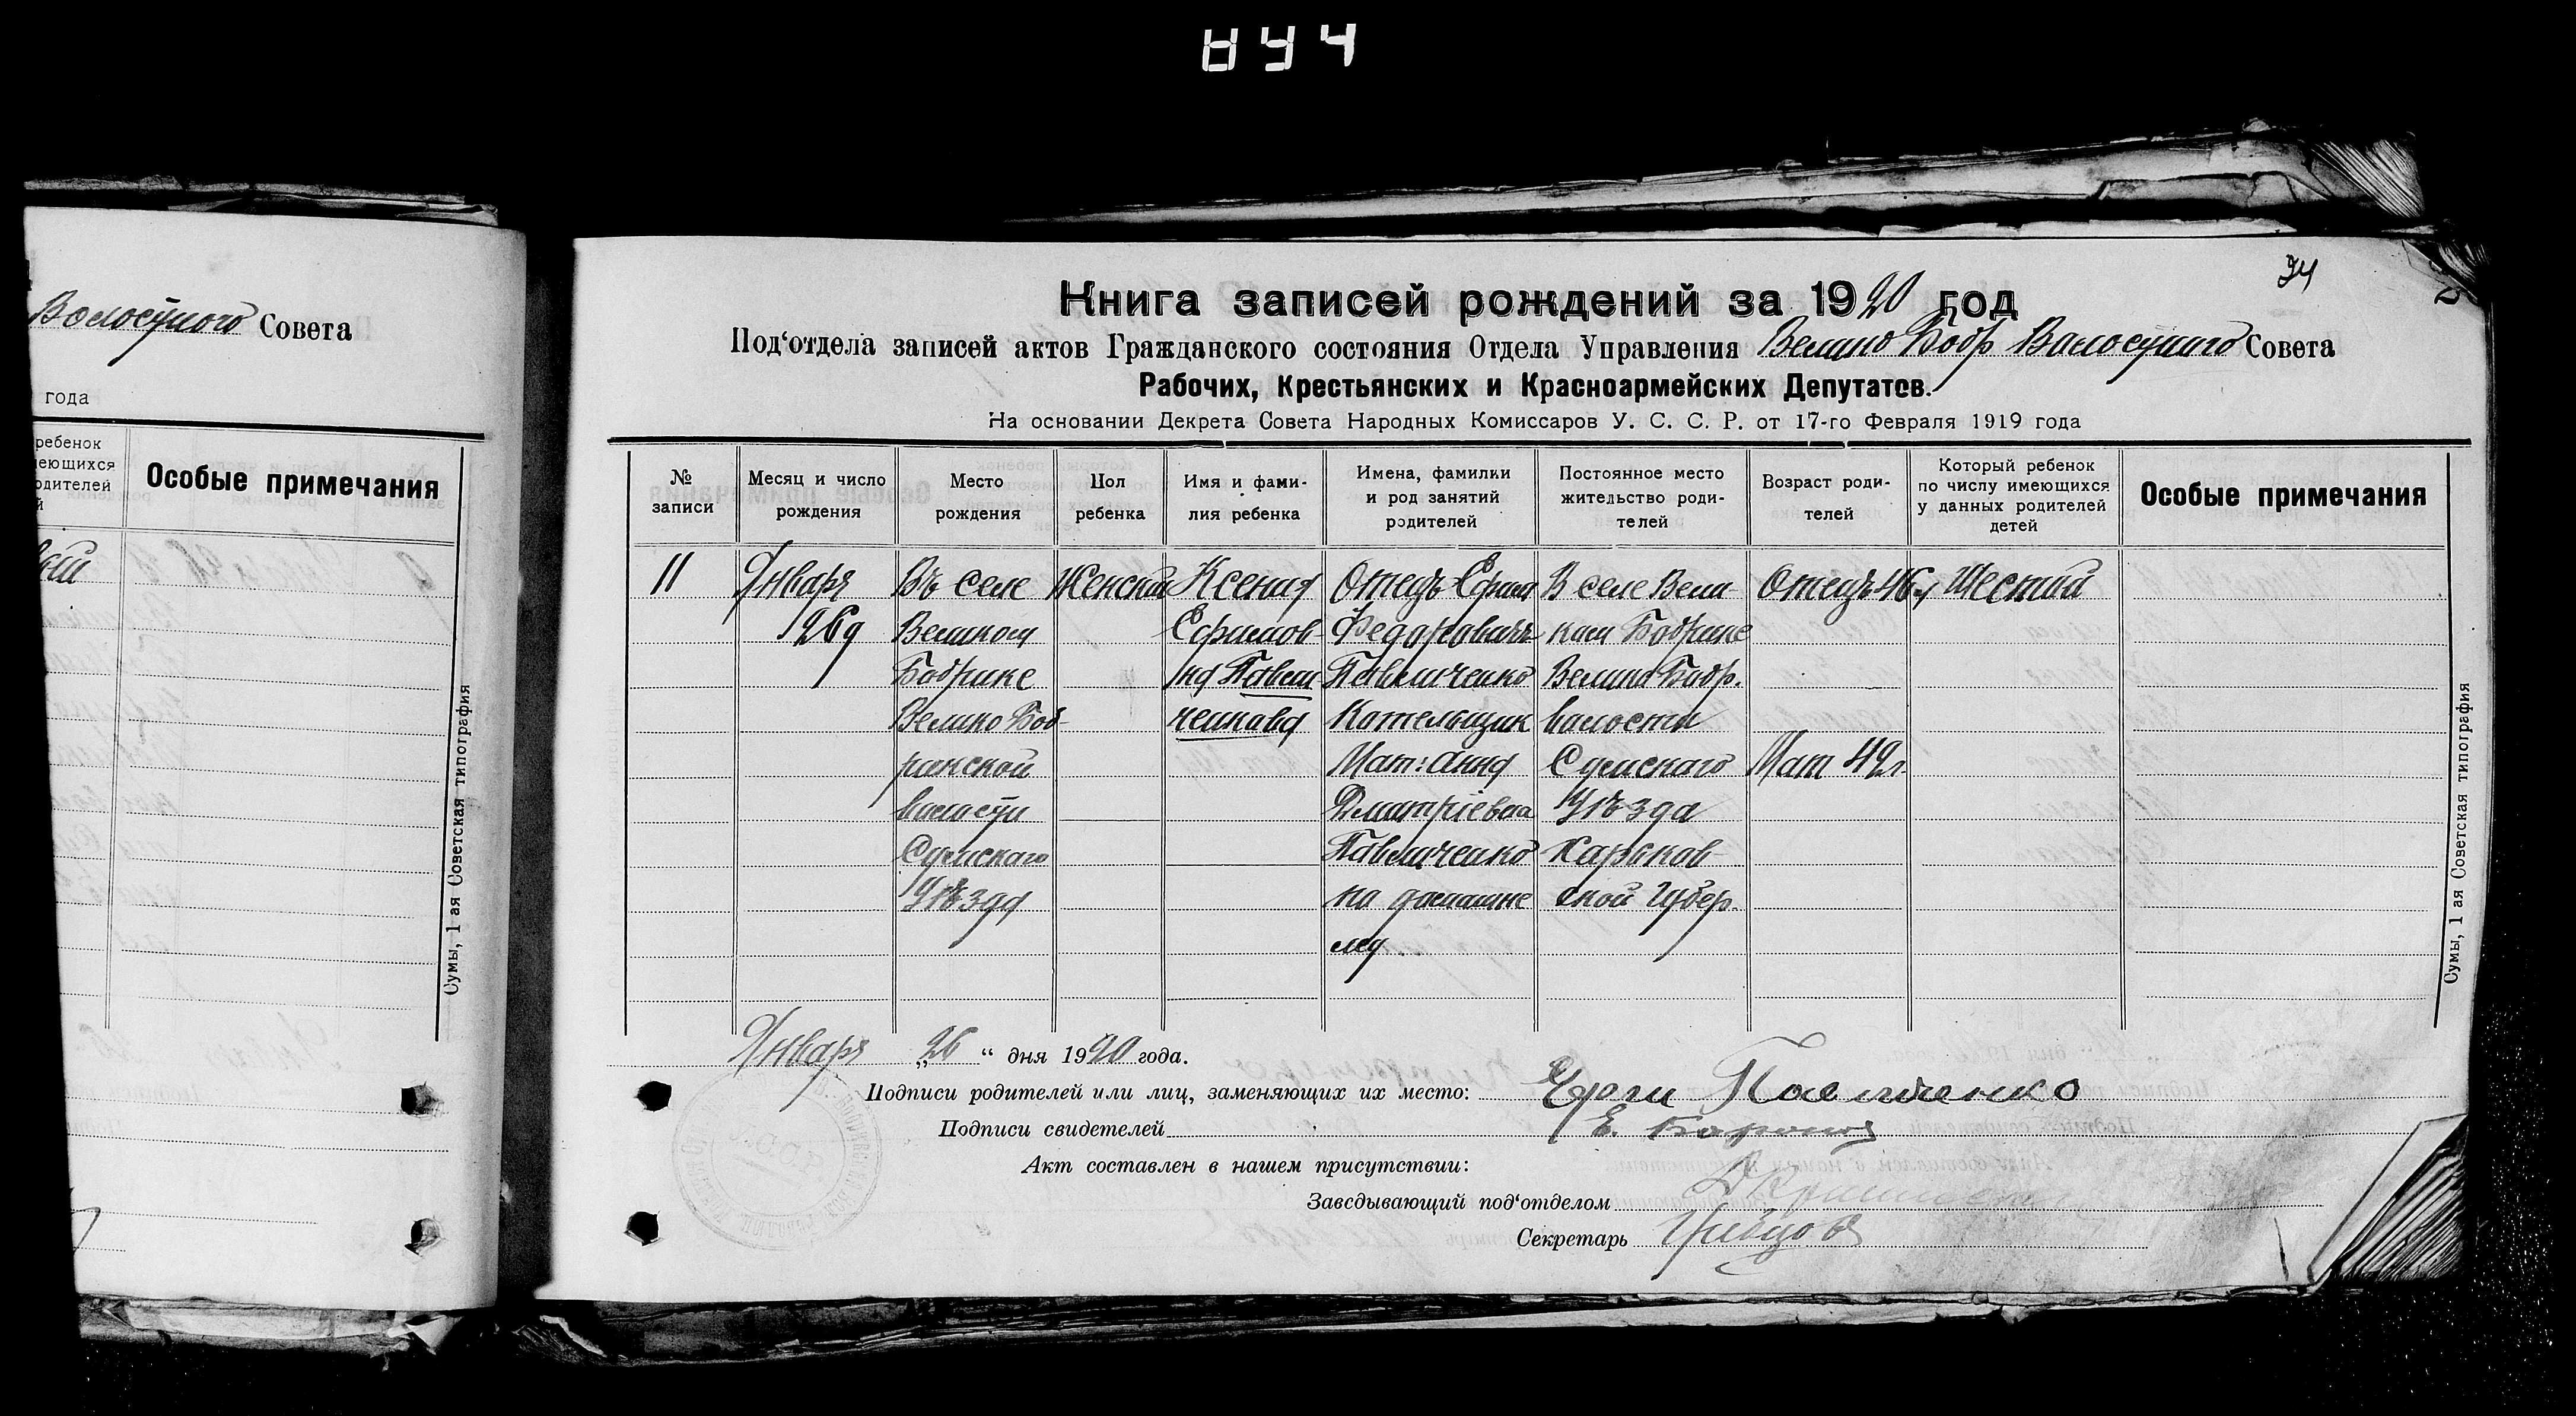 894
Волостного Совета
года
ребенок
Особые примечания
Сумы, 1 ая Советская типография
34
Книга записей рождений за 1920 год
Под‘отдела записей актов Гражданского состояния Отдела Управления Велико Бобр Волостного Совета
Рабочих, Крестьянских и Красноармейских Депутатов.
На основании Декрета Совета Народных Комиссаров У. С. С. Р. от 17-го Февраля 1919 года
№ записи
Месяц и число рождения
Место рождения
Пол ребенка
Имя и фами-
лия ребенка
Имена, фамилии
и род занятий
родителей
Постоянное место
жительство роди-
телей
Возраст роди-
телей
Который ребенок
по числу имеющихся
у данных родителей
детей
Особые примечания
11
Января
26д
Въ селе
Великом
Бобрике
Велико Боб-
рикской
волости
Сумскаго
Уѣзда
Женский
Ксения
Ефимов-
на Павли
ченкова
Отецъ Ефим
Федоровичъ
Павличенко
Котельщик
Мат: Анна
Дмитріевна
Павличенко
по домашне
му
В селе Вели-
ком Бобрике
Велико Бобр.
волости
Сумскаго
Уѣзда
Харьков-
ской Губер.
Отецъ 46 л
Мат 42 л.
Шестой
Сумы, 1 ая Советская типография
Января „26“ дня 1920 года.
Подписи родителей или лиц, заменяющих их место: Ефим Павличенко
Подписи свидетелей Е.
Акт составлен в нашем присутствии:
Заведывающий под‘отделом
Секретарь